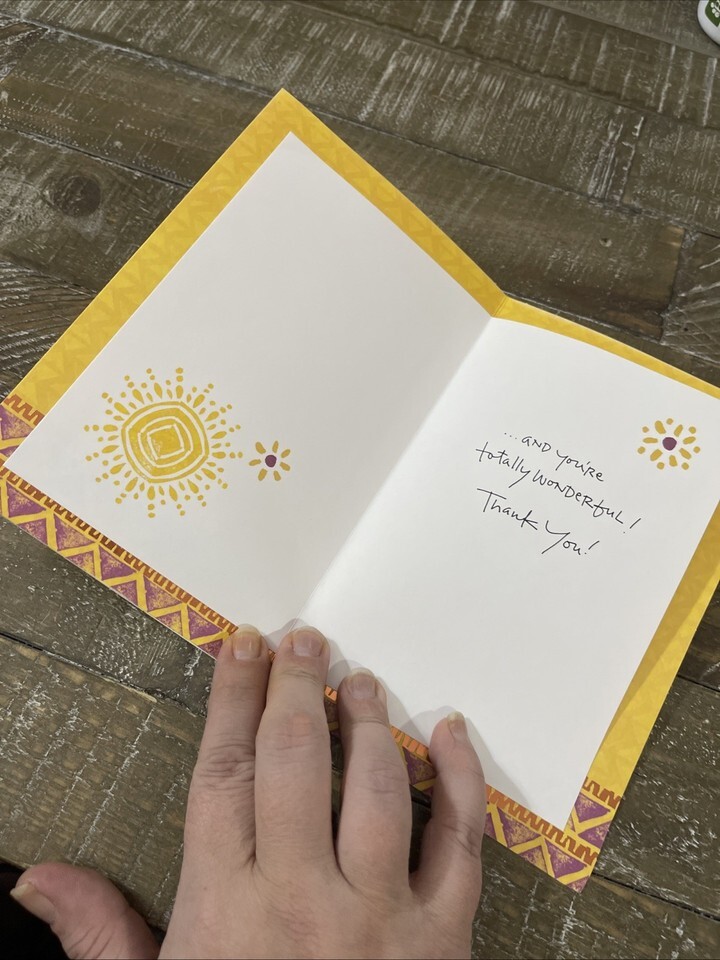 ...and you're
totally wonderful!
Thank You!